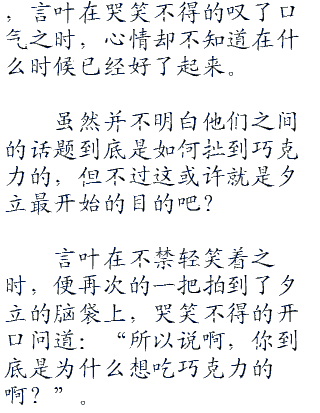 ，言叶在哭笑不得的叹了口
气之时，心情却不知道在什
么时候已经好了起来。
虽然并不明白他们之间
的话题到底是如何扯到巧克
力的，但不过这或许就是夕
立最开始的目的吧？
言叶在不禁轻笑着之
时，便再次的一把拍到了夕
立的脑袋上，哭笑不得的开
口问道：“所以说啊，你到
底是为什么想吃巧克力的
啊？”。